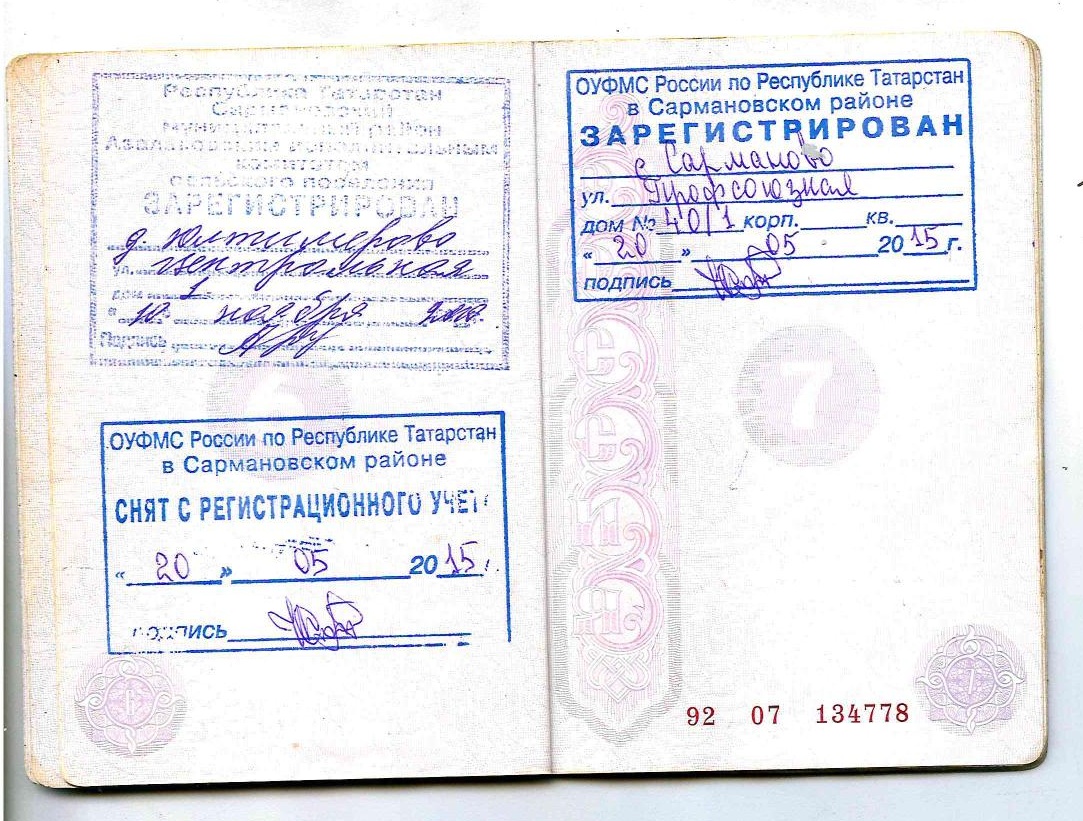 Республика Татарстан
Сармановский
муниципальный район
исполнительным
комитетом
сельского поселения
ЗАРЕГИСТРИРОВАН
д. Юлтимерово
ул. Центральная
дом 1
10 ноября
Подпись
6
ОУФМС России по Республике Татарстан
в Сармановском районе
СНЯТ С РЕГИСТРАЦИОННОГО УЧЕТ
« 20 » 05 2015 г.
подпись
6
ОУФМС России по Республике Татарстан
в Сармановском районе
ЗАРЕГИСТРИРОВАН
с Сарманово
ул. Профсоюзная
дом № 40/1 корп. кв.
« 20 » 05 2015 г.
подпись
7
92 07 134778
7